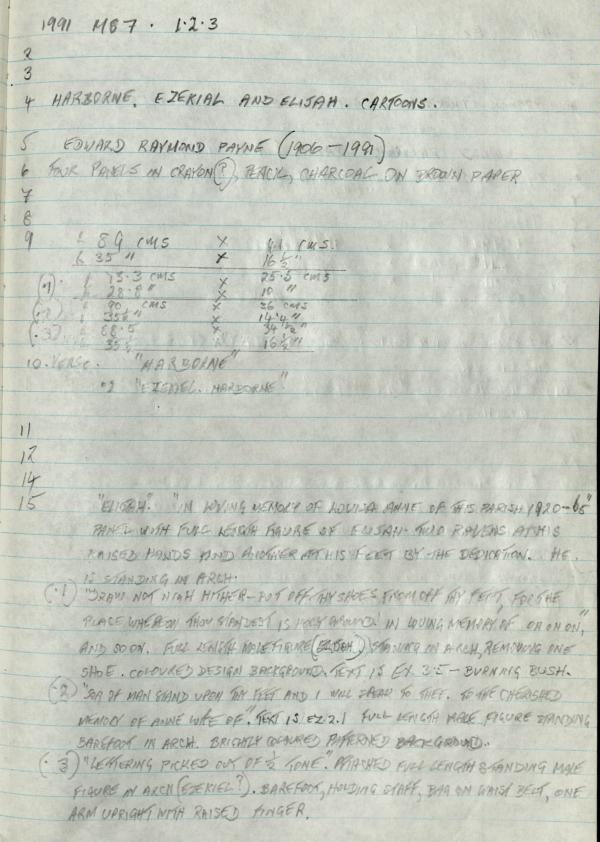 1991 MB7 . 1.2.3
2
3
4 HARBORNE. EZEKIAL AND ELIJAH. CARTOONS.
5 EDWARD RAYMOND PAYNE (1906-1991)
6 FOUR PANELS IN CRAYON(?), BLACK, CHARCOAL ON BROWN PAPER
7
8
9 89 CMS X 41 CMS.
35 " X 16½"
(.1). 73.3 CMS X 25.5 CMS
28.8" X 10 "
(.2) 90 CMS X 36 CMS
35½" X 14.4"
(.3) 88.5 X 34½"
35½ X 16½"
10. VERSE. "HARBORNE"
.2 "EZEKIEL. HARBORNE"
11
12
14
15 "ELIJAH". "IN LOVING MEMORY OF LOUISA ANNE OF THIS PARISH 1920-65"
PANEL WITH FULL LENGTH FIGURE OF ELIJAH TWO RAVENS AT HIS
RAISED HANDS AND ANOTHER AT HIS FEET BY THE DEDICATION. HE
IS STANDING IN ARCH.
(.1) "DRAW NOT NIGH HITHER-PUT OFF THY SHOES FROM OFF THY FEET, FOR THE
PLACE WHEREON THOU STANDEST IS HOLY GROUND. IN LOVING MEMORY OF ON ON ON,"
AND SO ON. FULL LENGTH MALE FIGURE (ELIJAH) STANDING IN ARCH, REMOVING ONE
SHOE. COLOURED DESIGN BACKGROUND. TEXT IS EX. 3:5 - BURNING BUSH.
(.2) "SON OF MAN STAND UPON THY FEET AND I WILL SPEAK TO THEE. TO THE CHERISHED
MEMORY OF ANNE WIFE OF". TEXT IS EZ 2.1 FULL LENGTH MALE FIGURE STANDING
BAREFOOT IN ARCH. BRIGHTLY COLOURED PATTERNED BACKGROUND.
(.3) "LETTERING PICKED OUT OF ½ TONE". ATTACHED FULL LENGTH STANDING MALE
FIGURE IN ARCH (EZEKIEL?). BAREFOOT, HOLDING STAFF, BAG ON WAIST BELT, ONE
ARM UPRIGHT WITH RAISED FINGER.